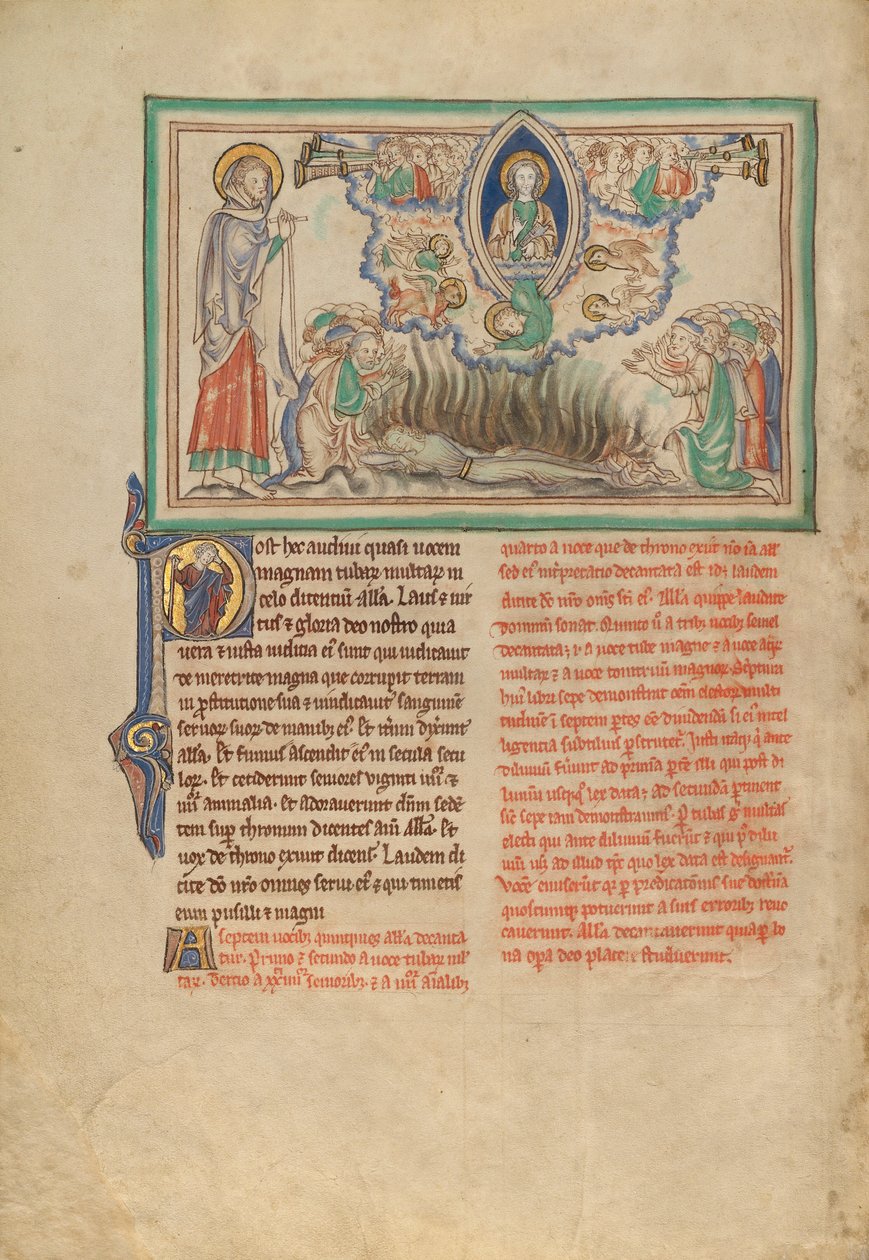 Post hec audiui quasi uocem
magnam tubar multar in
celo dicentiũ all'a. Laus ⁊ uir
tus ⁊ gloria deo nostro quia
uera ⁊ iusta iudicia ei' sunt qui iudicauit
de meretrice magna que corrupit terram
in prostitutione sua ⁊ uindicauit sanguinẽ
seruor suor de manibꝫ ei'. Et itm̃ dixerunt
all'a. Et fumus ascendit ei' in secula secu
lor. Et ceciderunt seniores uiginti iiiior ⁊
iiiior animalia. Et adorauerunt dñm sedẽ
tem sup thronum dicentes am̃ all'a. Et
uox de throno exiuit dicens. Laudem di
cite dõ nr̃o omnes serui ei' ⁊ qui timetis
eum pusilli ⁊ magni
A septem uocibꝫ quinquies all'a decanta
tur. Primo ⁊ secundo a uoce tubar mul
tar. Tercio a xxiiiior senioribꝫ ⁊ a iiiior aĩalibꝫ
quarto a uoce que de throno exiuit nõ iã all'a
sed ei' int̃pretatio decantata est id' laudem
dicite dõ nr̃o om̃s sc̃i ei'. All'a quippe laudate
dominũ sonat. Quinto ũ a tribꝫ uocibꝫ semel
decantata; i. a uoce tube magne ⁊ a uoce aqr
multar ⁊ a uoce tonitruũ magnor. Sc̃ptura
hui' libri sepe demonstrat oẽm elector multi
tudinẽ ĩ septem partes eẽ diuidendã si ei' intel
ligencia subtilius p̃scrutet'. Iusti itaq; q̃ ante
diluuiũ fuerunt ad primã partẽ illi qui post di
luuiũ usq; lex data ÷ ad secundã p̃tinent
sic̃ sepe iam demonstrauim'. P̃ tubas g̃ multas
electi qui ante diluuiũ fuerũt ⁊ qui p' dilu
uiũ usq; ad illud tp̃c quo lex data est designant'.
Uocẽ emiserunt q̃ p̃ predicationis sue doct'nã
quoscumq; potuerunt a suis erroribꝫ reuo
cauerunt. All'a decantauerunt quia p̃ bo
na op̃a deo placere studuerunt.